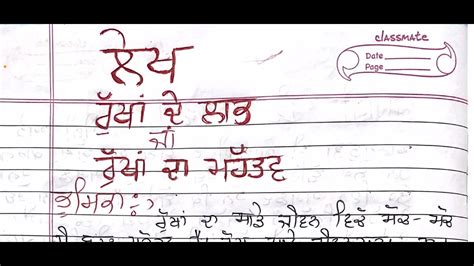 classmate
Date
Page
ਲੇਖ
ਰੁੱਖਾਂ ਦੇ ਲਾਭ
ਜਾਂ
ਰੁੱਖਾਂ ਦਾ ਮਹੱਤਵ
ਭੂਮਿਕਾ:
ਰੁੱਖਾਂ ਦਾ ਸਾਡੇ ਜੀਵਨ ਵਿੱਚ